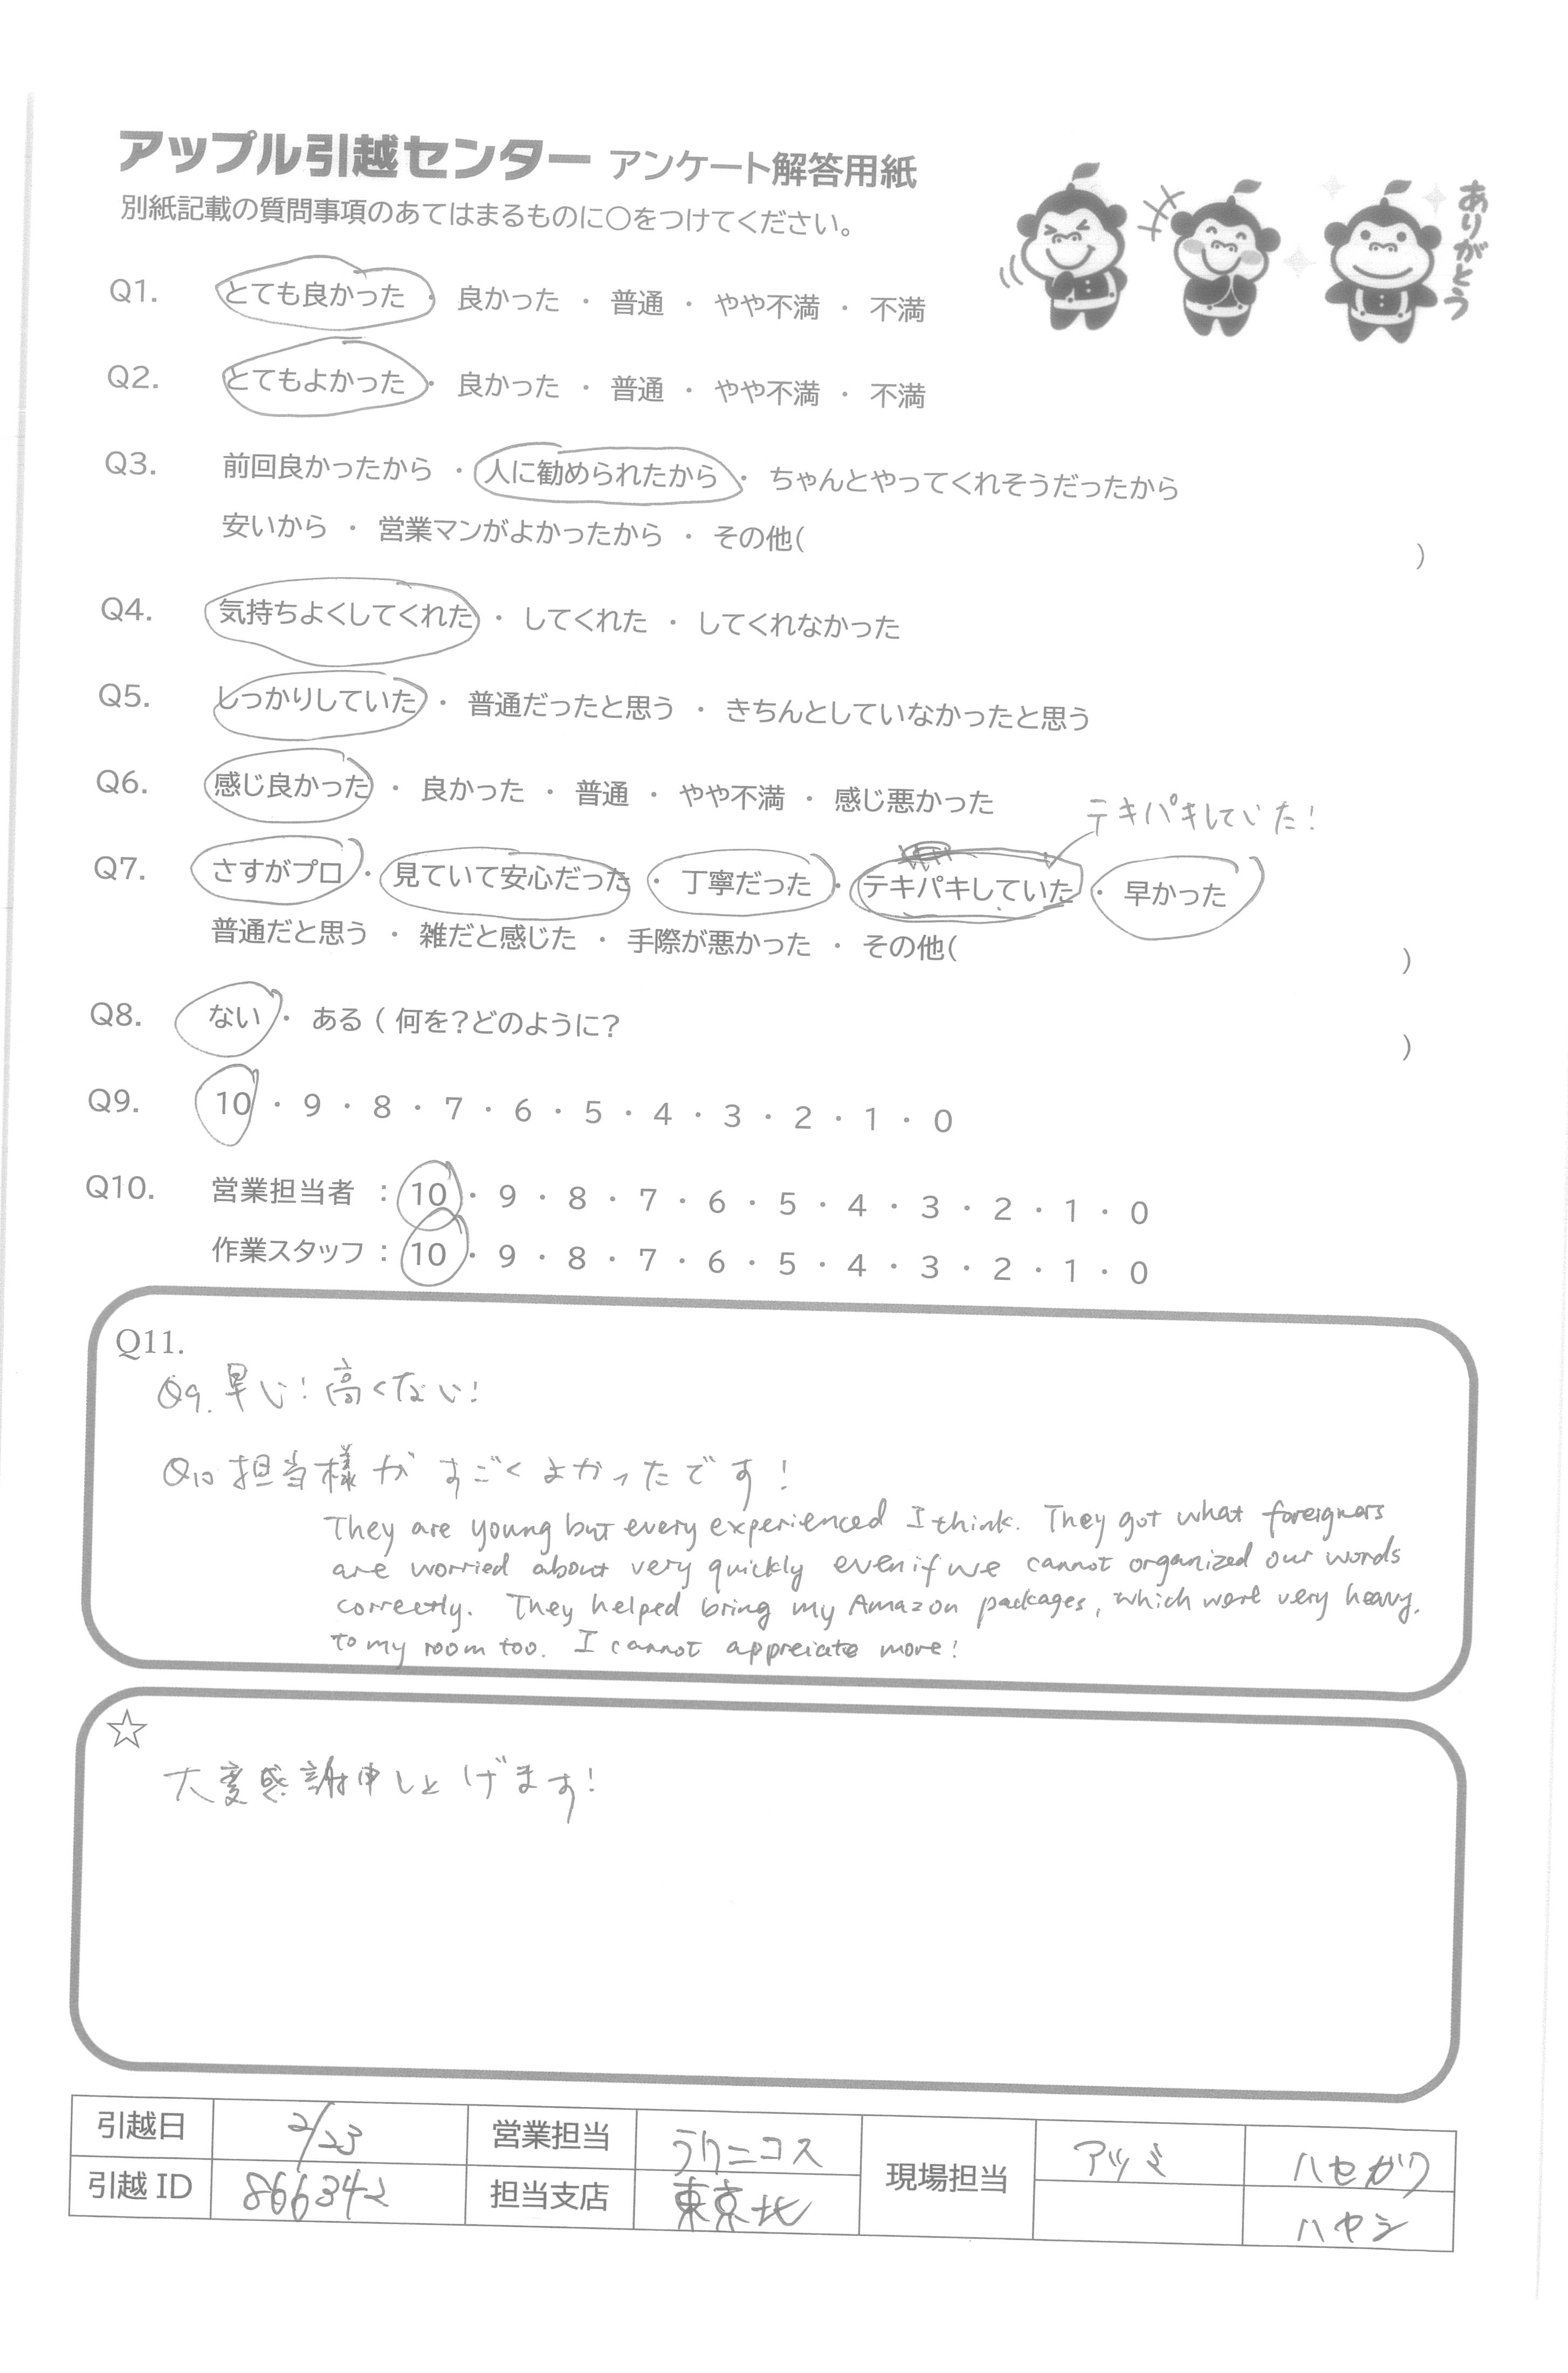 アップル引越センター アンケート解答用紙
別紙記載の質問事項のあてはまるものに○をつけてください。
ありがとう
Q1. とても良かった ・ 良かった ・ 普通 ・ やや不満 ・ 不満
Q2. とてもよかった ・ 良かった ・ 普通 ・ やや不満 ・ 不満
Q3. 前回良かったから ・ 人に勧められたから ・ ちゃんとやってくれそうだったから
安いから ・ 営業マンがよかったから ・ その他( )
Q4. 気持ちよくしてくれた ・ してくれた ・ してくれなかった
Q5. しっかりしていた ・ 普通だったと思う ・ きちんとしていなかったと思う
Q6. 感じ良かった ・ 良かった ・ 普通 ・ やや不満 ・ 感じ悪かった
テキパキしていた!
Q7. さすがプロ ・ 見ていて安心だった ・ 丁寧だった ・ テキパキしていた ・ 早かった
普通だと思う ・ 雑だと感じた ・ 手際が悪かった ・ その他( )
Q8. ない ・ ある ( 何を?どのように? )
Q9. 10 ・ 9 ・ 8 ・ 7 ・ 6 ・ 5 ・ 4 ・ 3 ・ 2 ・ 1 ・ 0
Q10. 営業担当者 : 10 ・ 9 ・ 8 ・ 7 ・ 6 ・ 5 ・ 4 ・ 3 ・ 2 ・ 1 ・ 0
作業スタッフ : 10 ・ 9 ・ 8 ・ 7 ・ 6 ・ 5 ・ 4 ・ 3 ・ 2 ・ 1 ・ 0
Q11.
Q9. 早い! 高くない!
Q10 担当様が すごくよかったです!
They are young but every experienced I think. They got what foreigners
are worried about very quickly even if we cannot organized our words
correctly. They helped bring my Amazon packages, which were very heavy,
to my room too. I cannot appreciate more!
☆
大変感謝申し上げます!
引越日 2/23 営業担当 ラクニコス 現場担当 アツミ ハセガワ
引越 ID 866342 担当支店 東京北 ハヤシ